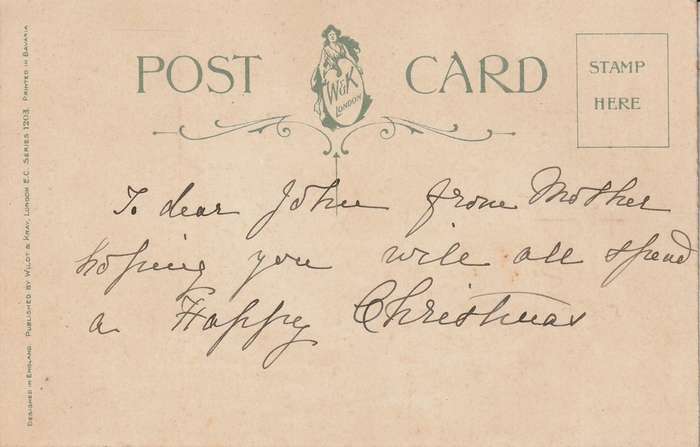 POST CARD
W&K
LONDON
STAMP
HERE
To dear John from Mother
hoping you will all spend
a Happy Christmas
DESIGNED IN ENGLAND. PUBLISHED BY WILDT & KRAY, LONDON E.C. SERIES 1203. PRINTED IN BAVARIA